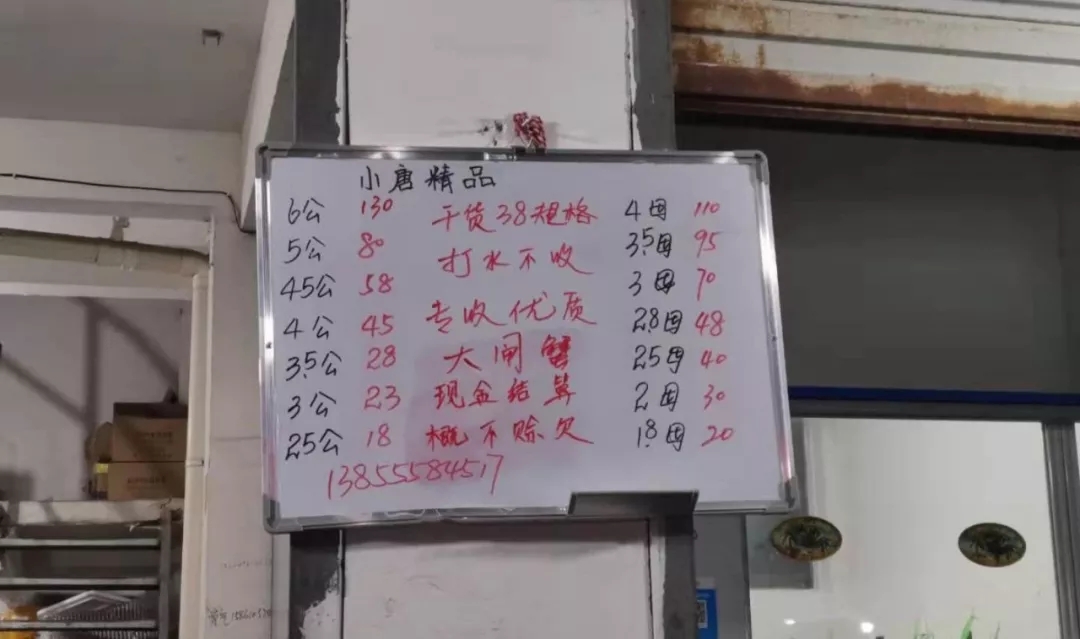 小唐精品
6公 130 干货38规格 4母 110
5公 80 打水不收 3.5母 95
45公 58 专收优质 3母 70
4公 45 大闸蟹 2.8母 48
3.5公 28 现金结算 25母 40
3公 23 概不赊欠 2母 30
2.5公 18 1.8母 20
13855584517